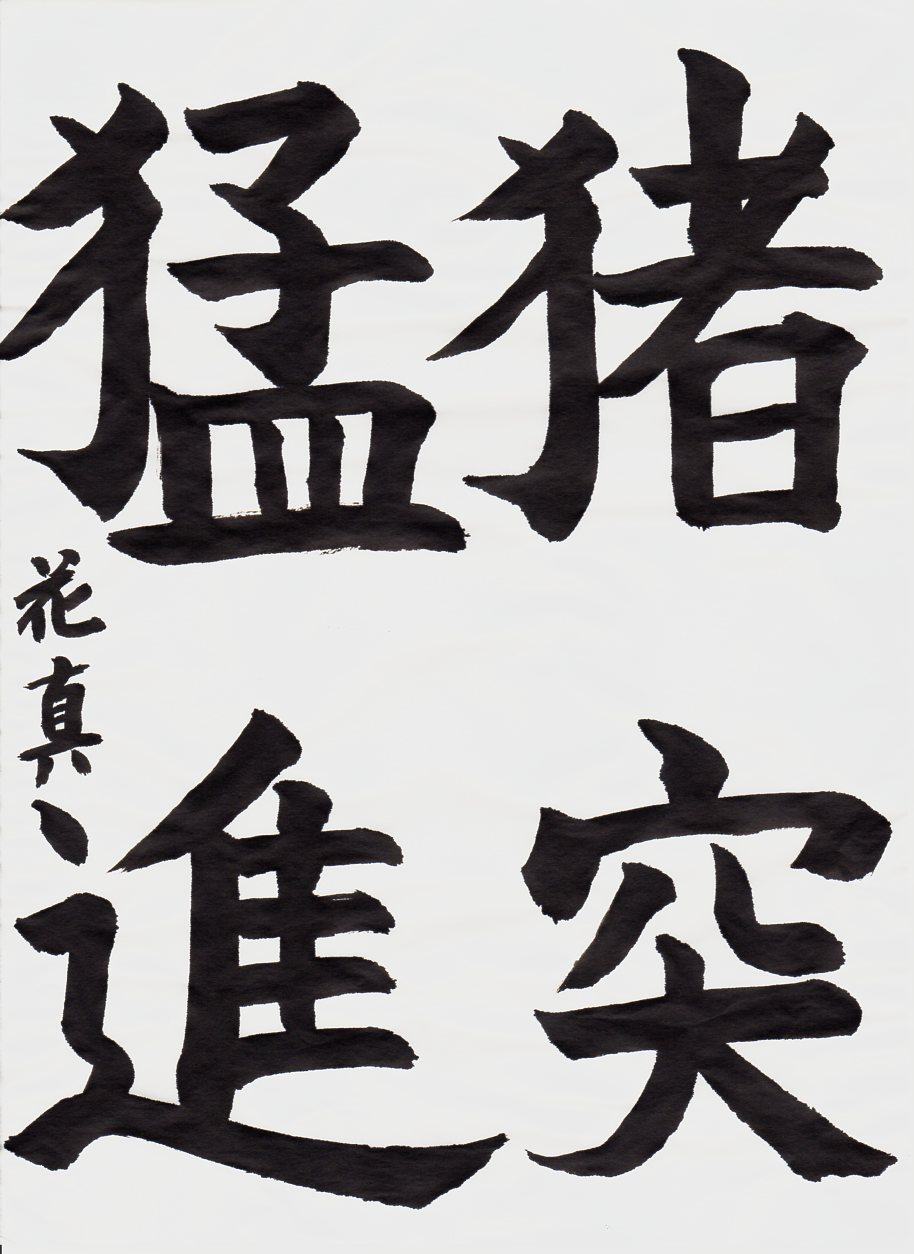 猪突
猛進
花真